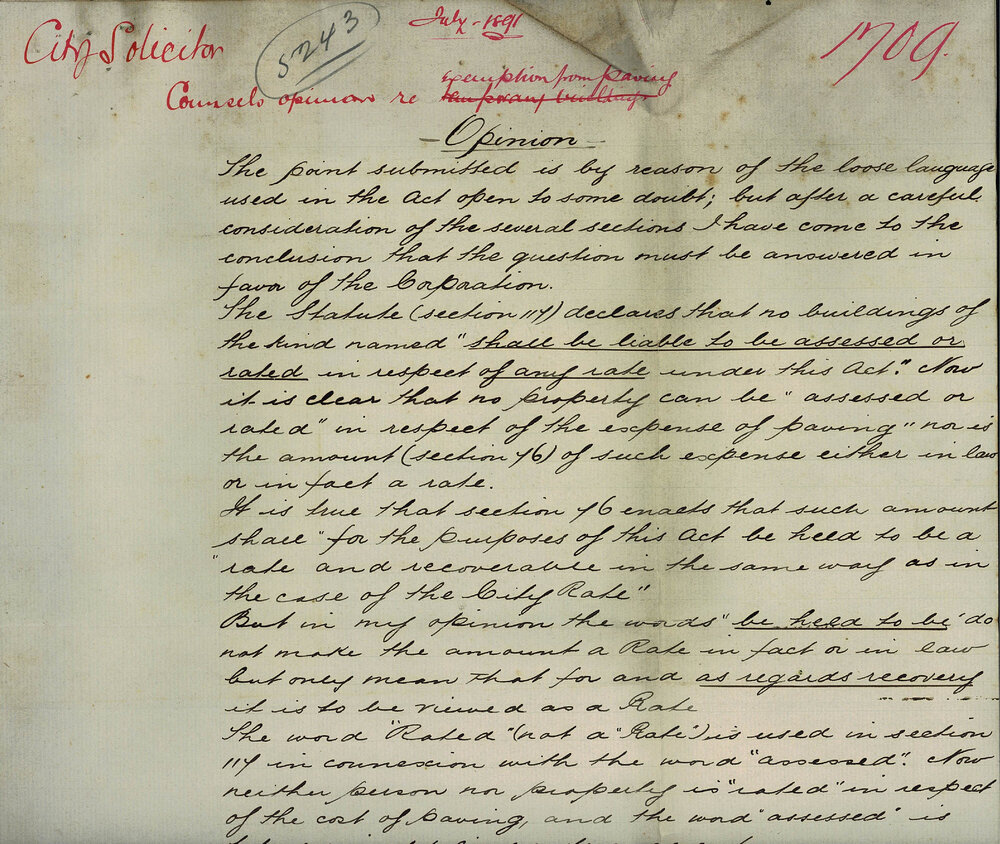 July - 1891
City Solicitor
5243
1709.
exemption from paving
Counsels opinion re temporary buildings
- Opinion -
The point submitted is by reason of the loose language
used in the Act open to some doubt; but after a careful
consideration of the several sections I have come to the
conclusion that the question must be answered in
favor of the Corporation.
The Statute (section 117) declares that no buildings of
the kind named "shall be liable to be assessed or
rated in respect of any rate under this Act." Now
it is clear that no property can be "assessed or
rated" in respect of the expense of paving" nor is
the amount (section 76) of such expense either in law
or in fact a rate.
It is true that section 76 enacts that such amount
shall "for the purposes of this Act be held to be a
"rate and recoverable in the same way as in
the case of the City Rate"
But in my opinion the words "be held to be" do
not make the amount a Rate in fact or in law
but only mean that for and as regards recovery
it is to be viewed as a Rate
The word "Rated" (not a "Rate") is used in section
117 in connexion with the word "assessed". Now
neither person nor property is "rated" in respect
of the cost of paving, and the word "assessed" is